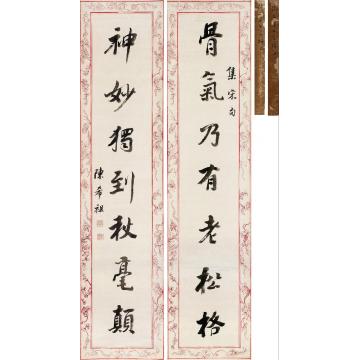 骨氣乃有老松格
集宋句
神妙獨到秋毫顛
陳希祖